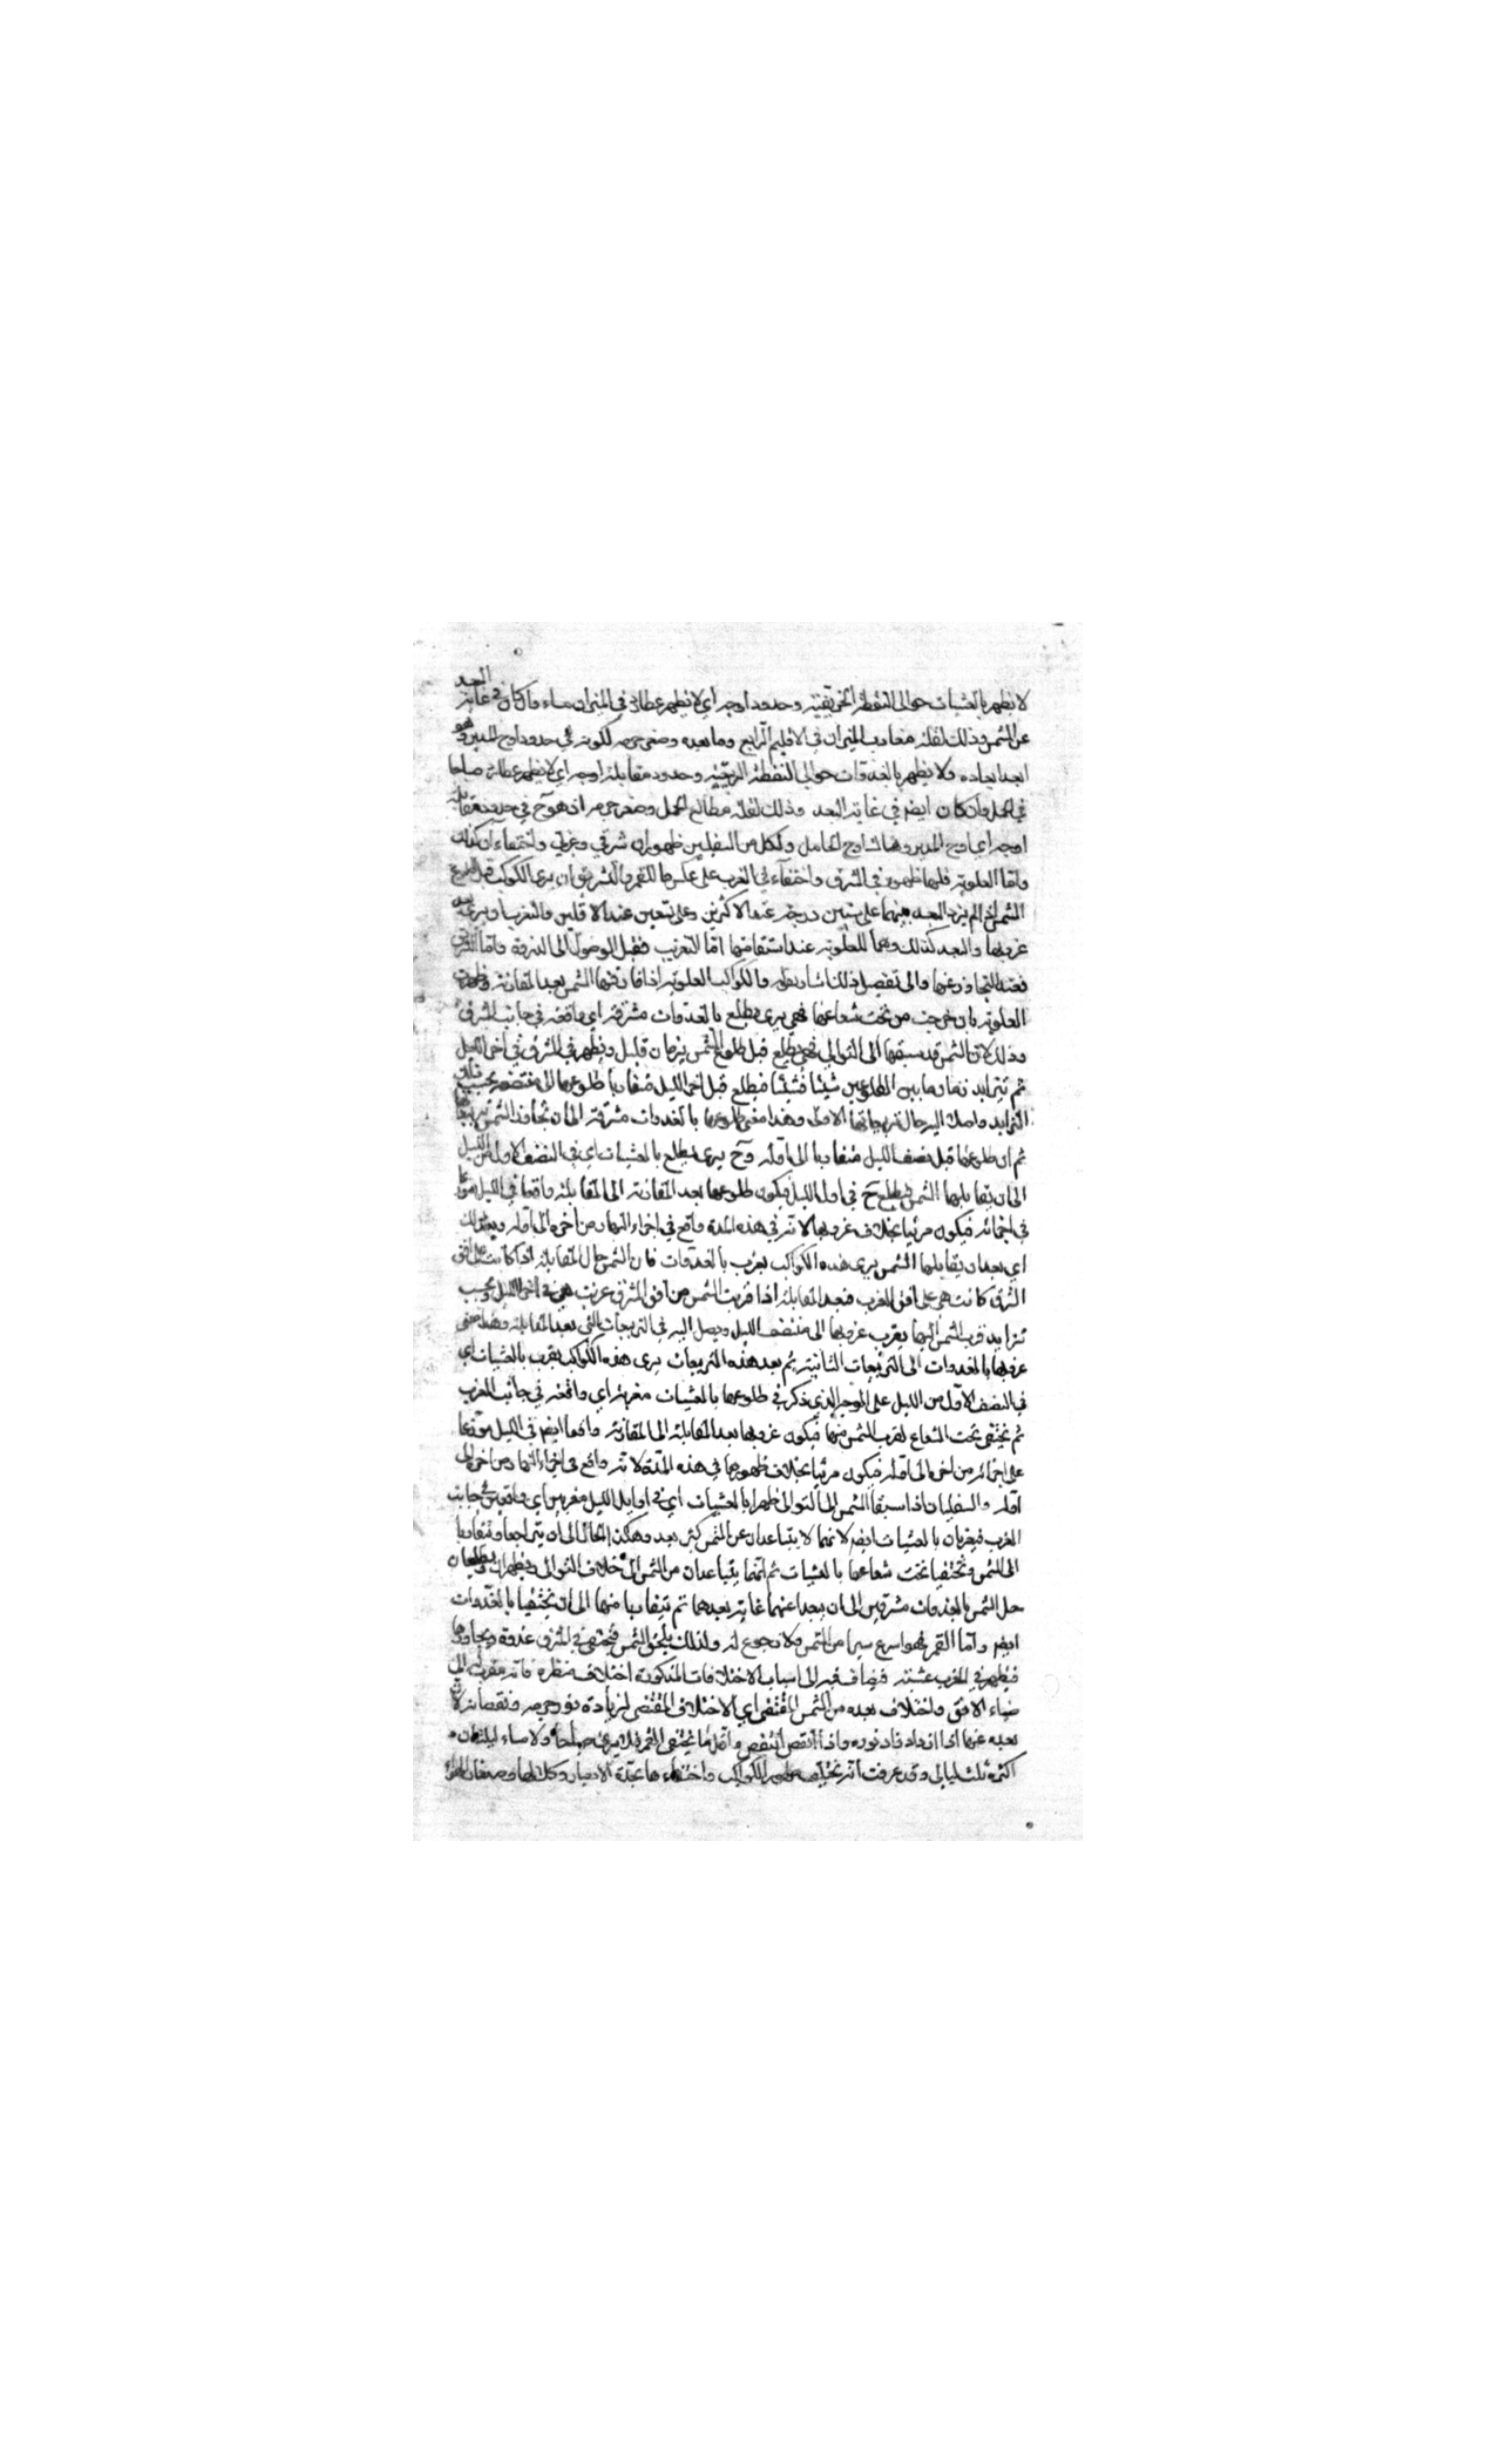 لا يظهر بالعشيات حوالى النقطة الخريفية وحدود اوجه اي لا يظهر عطارد في الميزان مساء وان كان في غاية البعد
عن الشمس وذلك لقلة مغارب الميزان في الاقليم الرابع وما بعده وصغر جرمه لكونه في حدود اوج المدير وهو
ابعد ابعاده ولا يظهر بالغدوات حوالي النقطة الربيعية وحدود مقابلة اوجه اي لا يظهر عطارد صباحا
في الحمل وان كان ايضا في غاية البعد وذلك لقلة مطالع الحمل وصغر جرمه اذ هو ح في حدود مقابلة
اوجه اي اوج المدير وهناك اوج الحامل ولكل من السفليين ظهوران شرقي وغربي واختفاءان كذلك
واما العلوية فلها ظهور في الشرق واختفاء في الغرب على عكس ما للقمر والتشريق ان يرى الكوكب قبل طلوع
الشمس اذا لم يزد البعد بينهما على ستين درجة عند الاكثرين وعلى تسعين عند الاقلين والتغريب ان يرى بعد
غروبها والبعد كذلك وهما للعلوية عند استقامتها اما التغريب فقبل الوصول الى الذروة واما التشريق
فعند التجاوز عنها والى تفصيل ذلك اشار بقوله والكواكب العلوية اذا فارقتها الشمس بعد المقارنة وظهرت
العلوية بان خرجت من تحت شعاعها فهي يرى يطلع بالغدوات مشرقة اي واقعة في جانب الشرق
وذلك لان الشمس قد سبقتها الى التوالي فهي يطلع قبل طلوع الشمس بزمان قليل ويظهر في الشرق في اخر الليل
ثم يتزايد زمان ما بين الطلوعين شيئا فشيئا فيطلع قبل اخر الليل متقاربا طلوعها الى منتصفه بحسب ذلك
التزايد واصلا اليه حال تربيعاتها الاول وهذا معنى طلوعها بالغدوات مشرقة الى ان تجاوز الشمس تربيعها
ثم ان طلوعها قبل نصف الليل متقاربا الى اوله وح يرى يطلع بالعشيات اي في النصف الاول من الليل
الى ان يقابلها الشمس فيطلع ح في اول الليل فيكون طلوعها بعد المقارنة الى المقابلة واقعا في الليل موزعا
في اجزائه فيكون مرئيا بخلاف غروبها لانه في هذه المدة واقع في اجزاء النهار من اخره الى اوله وبعد ذلك
اي بعد ان يقابلها الشمس يرى هذه الكواكب يغرب بالغدوات فان الشمس حال المقابلة اذا كانت على افق
الشرق كانت هي على افق الغرب فبعد المقابلة اذا قربت الشمس من افق المشرق غربت هي في اخر الليل وبحسب
تزايد قرب الشمس اليها يقرب غروبها الى منتصف الليل ويصل اليه في التربيعات التي بعد المقابلة وهذا معنى
غروبها بالغدوات الى التربيعات الثانية ثم بعد هذه التربيعات يرى هذه الكواكب يغرب بالعشيات اي
في النصف الاول من الليل على الوجه الذي ذكر في طلوعها بالعشيات مغربة اي واقعة في جانب الغرب
ثم يختفي تحت الشعاع لقرب الشمس منها فيكون غروبها بعد المقابلة الى المقارنة واقعا ايضا في الليل موزعا
على اجزائه من اخره الى اوله فيكون مرئيا بخلاف ظهورها في هذه المدة لانه واقع في اجزاء النهار من اخره الى
اوله والسفليان اذا سبقا الشمس الى التوالي ظهرا بالعشيات اي في اوايل الليل مغربين اي واقعين في جانب
الغرب فيغربان بالعشيات ايضا لانهما لا يتباعدان عن الشمس كثير بعد وهكذا الحال الى ان يتراجعا ويتقاربا
الى الشمس وتختفيا تحت شعاعها بالعشيات ثم انهما يتباعدان من الشمس الى خلاف التوالى ويظهران ويطلعان
قبل الشمس بالغدوات مشرقين الى ان يبعدا عنها غاية بعدهما ثم يتقاربا منها الى ان يختفيا بالغدوات
ايضا واما القمر فهو اسرع سيرا من الشمس ولا رجوع له ولذلك يلحق الشمس فيختفي في الشرق غدوة ويجاوزها
فيظهر في الغرب عشية فيضاف فيه الى اسباب الاختلافات المذكورة اختلاف منظره فانه مقربه الى
ضياء الافق واختلاف بعده من الشمس المقتضى اي الاختلاف المقتضى لزيادة نور جرمه ونقصانه لان
بعده عنها اذا ازداد زاد نوره واذا انتقص انتقص واقل ما يختفي القمر فلا يرى صباحا ولا مساء ليلتان
اكثره ثلث ليالي وقد عرفت انه يختلف ظهور الكواكب واختفاءها بحدة الابصار وكلالها وصفاء الهواء